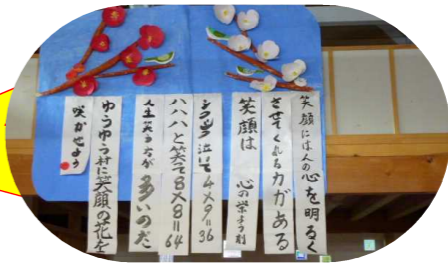 笑顔には人の心を明るく
させてくれる力がある
笑顔は 心の栄よう剤
シクシク泣いて4×9=36
ハハハと笑って8×8=64
人生笑う方が多いのだ
ゆうゆう村に笑顔の花を
咲かせよう